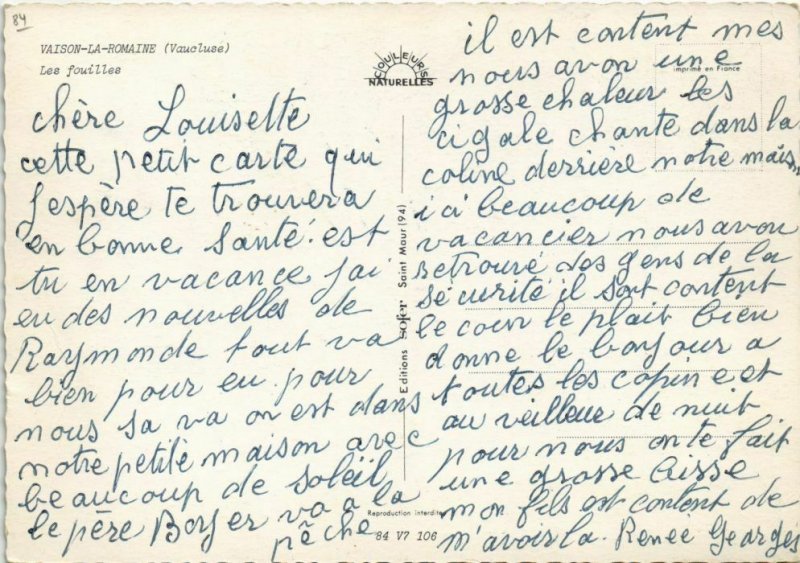 84
VAISON-LA-ROMAINE (Vaucluse)
Les fouilles
COULEURS
NATURELLES
Imprimé en France
chère Louisette
cette petit carte qui
j'espère te trouvera
en bonne santé. est
tu en vacance j'ai
eu des nouvelles de
Raymonde tout va
bien pour eu pour
nous sa va on est dans
notre petite maison avec
beaucoup de soleil
le père Boyer va a la
pêche
Editions SOFER Saint Maur (94)
Reproduction interdite
84 V7 106
il est content mes
nous avon une
grosse chaleur les
cigale chante dans la
coline derrière notre mais
ici beaucoup de
vacancier nous avon
retrouvé des gens de la
sécurité il sont content
le coin le plait bien
donne le bonjour a
toutes les copine et
au veilleur de nuit
pour nous on te fait
une grosse bisse
mon fils est content de
m'avoir la. Renée Georges